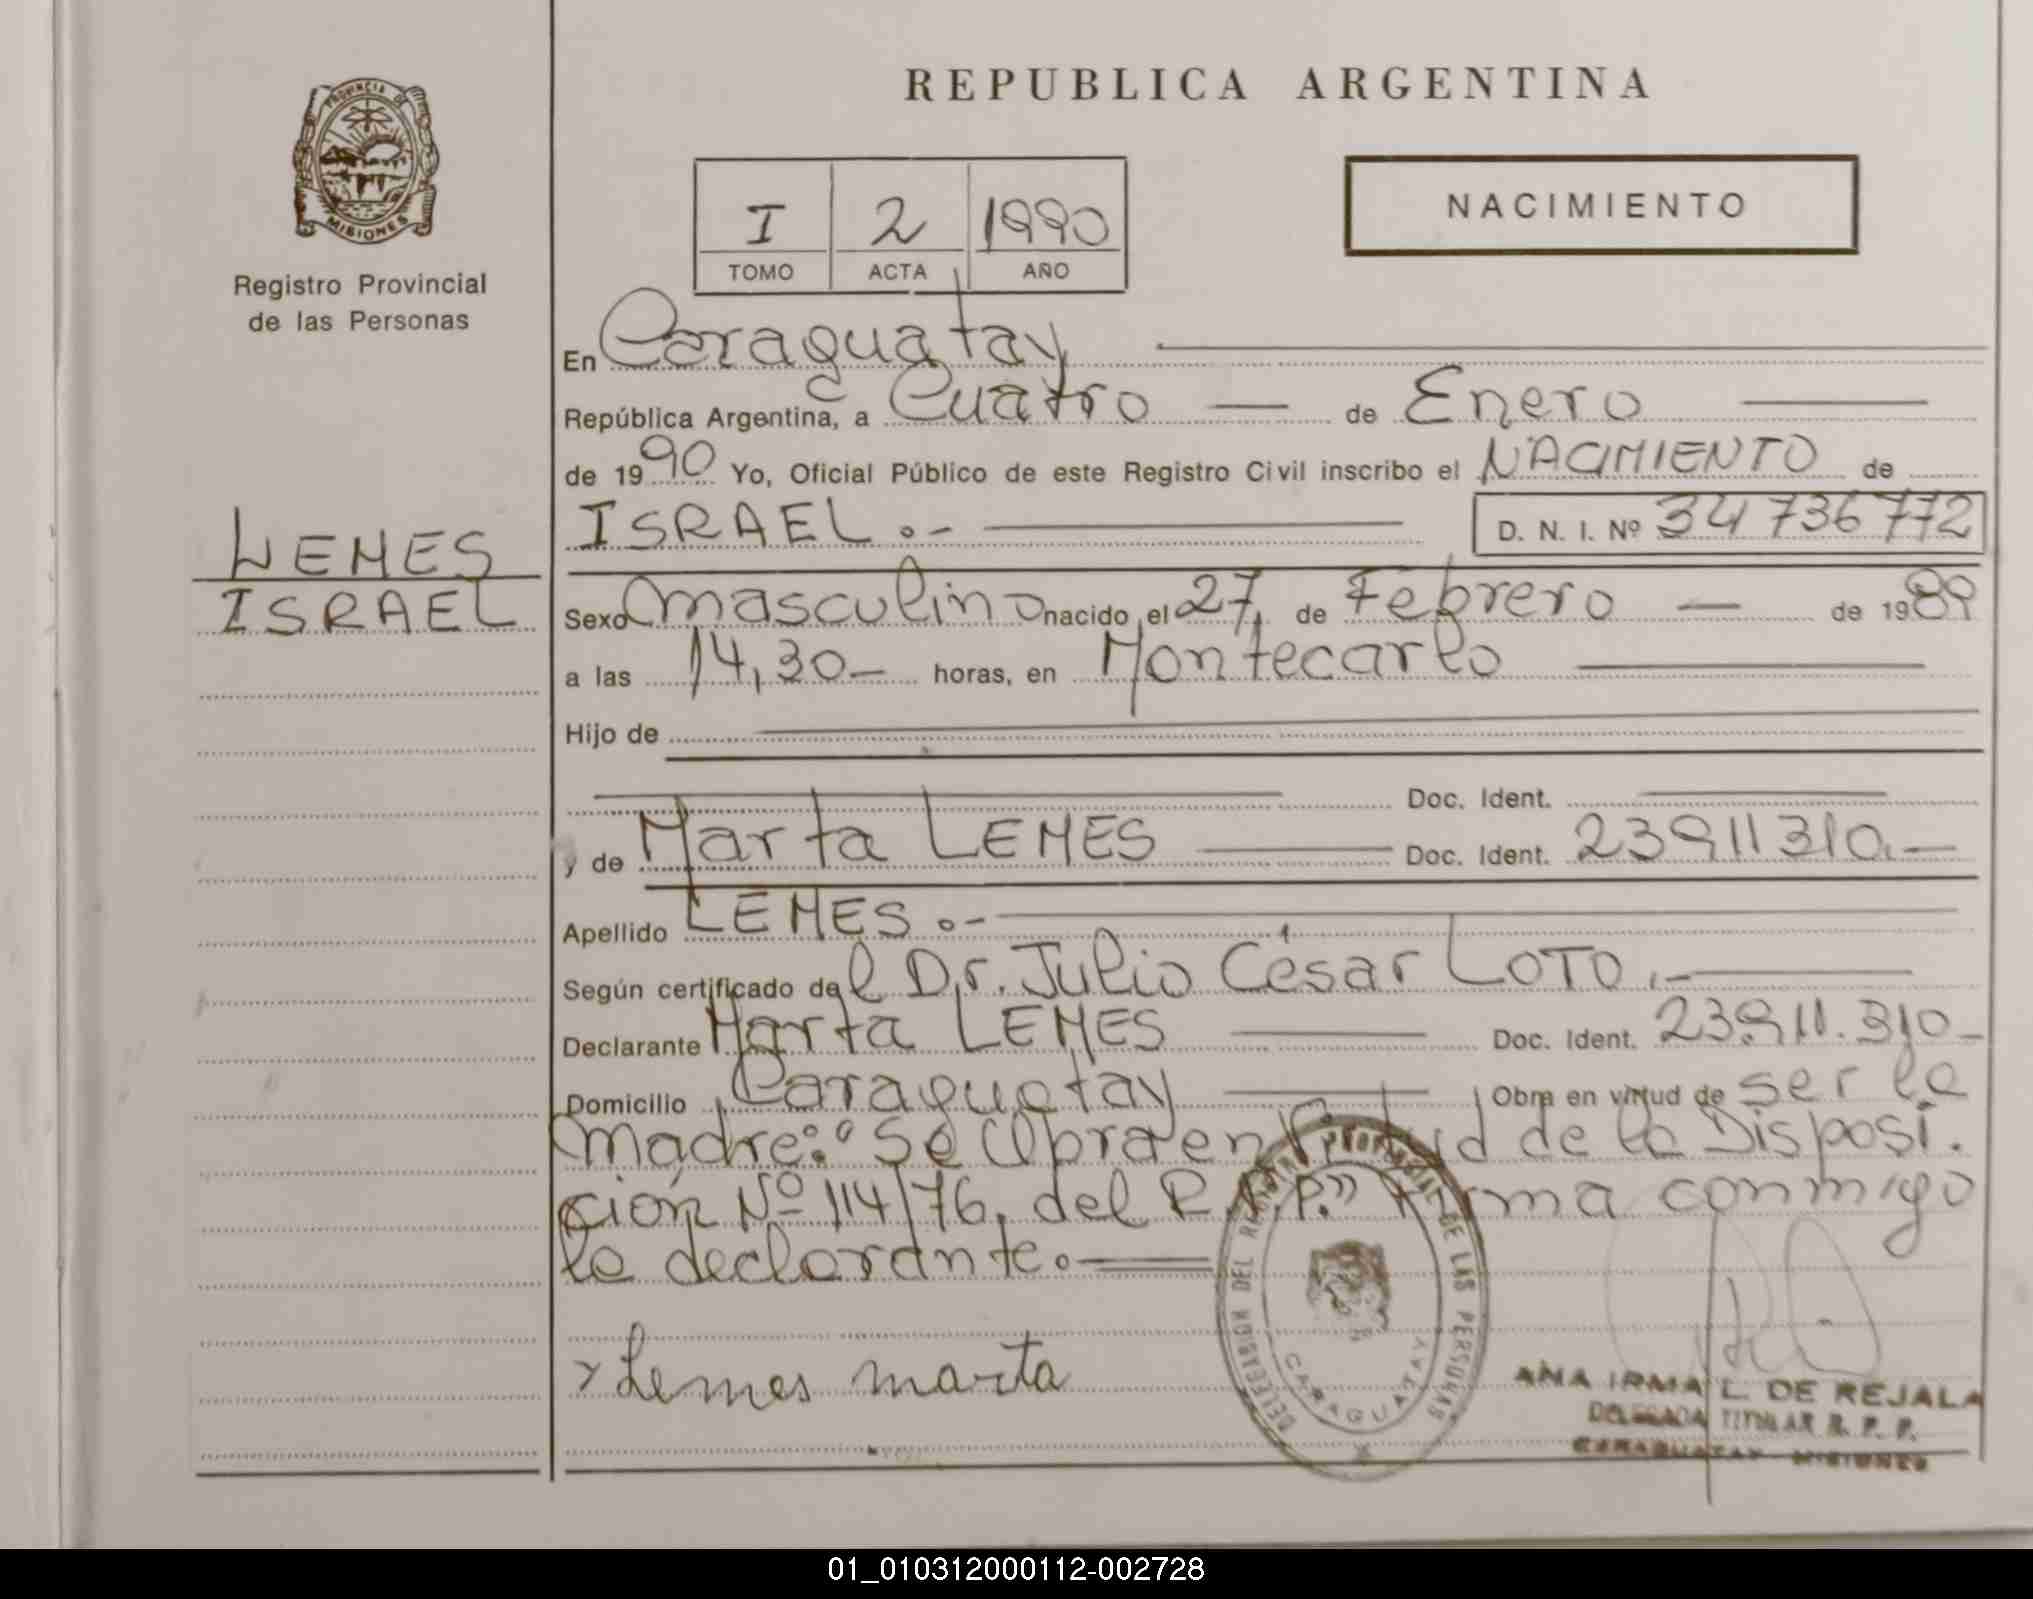 REPUBLICA ARGENTINA
PROVINCIA DE MISIONES
Registro Provincial
de las Personas
NACIMIENTO
I 2 1990
TOMO ACTA AÑO
En Caraguatay
República Argentina, a Cuatro — de Enero —
de 1990 Yo, Oficial Público de este Registro Civil inscribo el NACIMIENTO de
ISRAEL.- D. N. I. Nº 34736772
LEMES
ISRAEL
Sexo Masculino nacido el 27 de Febrero — de 1989
a las 14,30- horas, en Montecarlo
Hijo de
Doc. Ident.
y de Marta LEMES — Doc. Ident. 23911310.-
Apellido LEMES.-
Según certificado del Dr. Julio César LOTO.-
Declarante Marta LEMES — Doc. Ident. 23.911.310-
Domicilio Caraguatay — Obra en virtud de ser la
Madre: "Se Obra en virtud de la Disposi.
ción Nº 114/76, del R.P.P." Firma conmigo
la declarante.-
Lemes marta
DELEGACION DEL REGISTRO PROVINCIAL DE LAS PERSONAS
CARAGUATAY
ANA IRMA L. DE REJALA
DELEGADA TITULAR R. P. P.
CARAGUATAY MISIONES
01_010312000112-002728